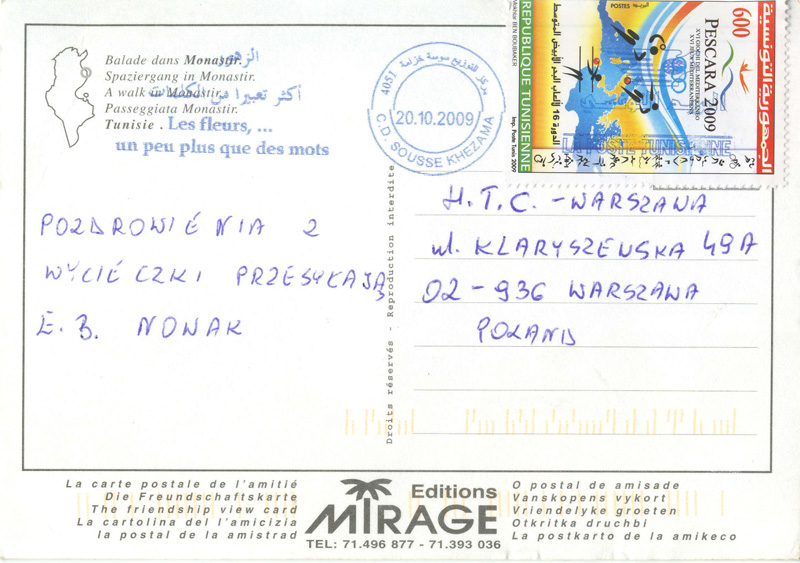 Balade dans Monastir.
Spaziergang in Monastir.
A walk in Monastir.
Passeggiata Monastir.
Tunisie .
الزهور
أكثر تعبيرا من الكلمات
Les fleurs, ...
un peu plus que des mots
مركز التوزيع سوسة خزامة
4051
20.10.2009
C.D. SOUSSE KHEZAMA
REPUBLIQUE TUNISIENNE
Imp. Poste Tunis 2009
الدورة 16 لألعاب البحر الأبيض المتوسط
POSTES
PESCARA 2009
XVI GIOCHI DEL MEDITERRANEO
600
الجمهورية التونسية
LA POSTE TUNISIENNE
POZDROWIENIA Z
WYCIECZKI PRZESYŁAJĄ
E. B. NOWAK
H.T.C. - WARSZAWA
ul. KLARYSZEWSKA 49A
02-936 WARSZAWA
POLAND
Droits réservés - Reproduction interdite
La carte postale de l'amitié
Die Freundschaftskarte
The friendship view card
La cartolina del l'amicizia
la postal de la amistrad
Editions
MIRAGE
TEL: 71.496 877 - 71.393 036
O postal de amisade
Vanskopens vykort
Vriendelyke groeten
Otkritka druchbi
La postkarto de la amikeco